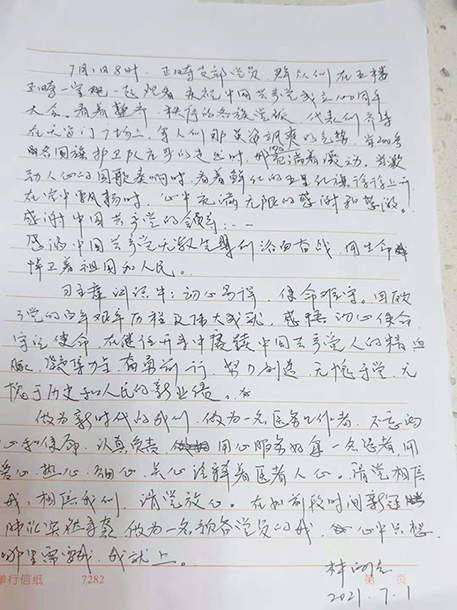 7月1日8时，正崎支部党员，群众们在五楼
正崎一党地一起观看庆祝中国共产党成立100周年
大会。看着整齐、秩序的各族党旗、代表们齐聚
在天安门广场上，军人们那英姿飒爽的气势，当200名
国旗护卫队庄严的走出时，都充满着激动，当激
动人心的国歌奏响时，看着鲜红的五星红旗冉冉上升
在空中飘扬时，心中充满无限的感谢和感激。
感谢中国共产党的领导；……
感谢中国共产党无数先辈们浴血奋战，用生命
悍卫着祖国和人民。
习主席训识牛：初心易得，使命难守。回顾
了党的百年艰辛历程及伟大成就，感悟初心使命
守记使命，在继往开来中赓续中国共产党人的精神血
脉，凝聚力量奋勇前行，努力创造无愧于党、无
愧于历史和人民的新业绩。
做为新时代的我们，做为一名医务工作者，不忘初
心和使命，认真负责，用心服务好每一名患者，用
爱心、热心、细心、关心诠释着医者人心。请党相信
我，相信我们，请党放心。在如前段时间新冠
肺炎突然来袭，做为一名预备党员的我，心中只想
哪里需要我，我就上。
2021.7.1
单行信纸 7282 第 页